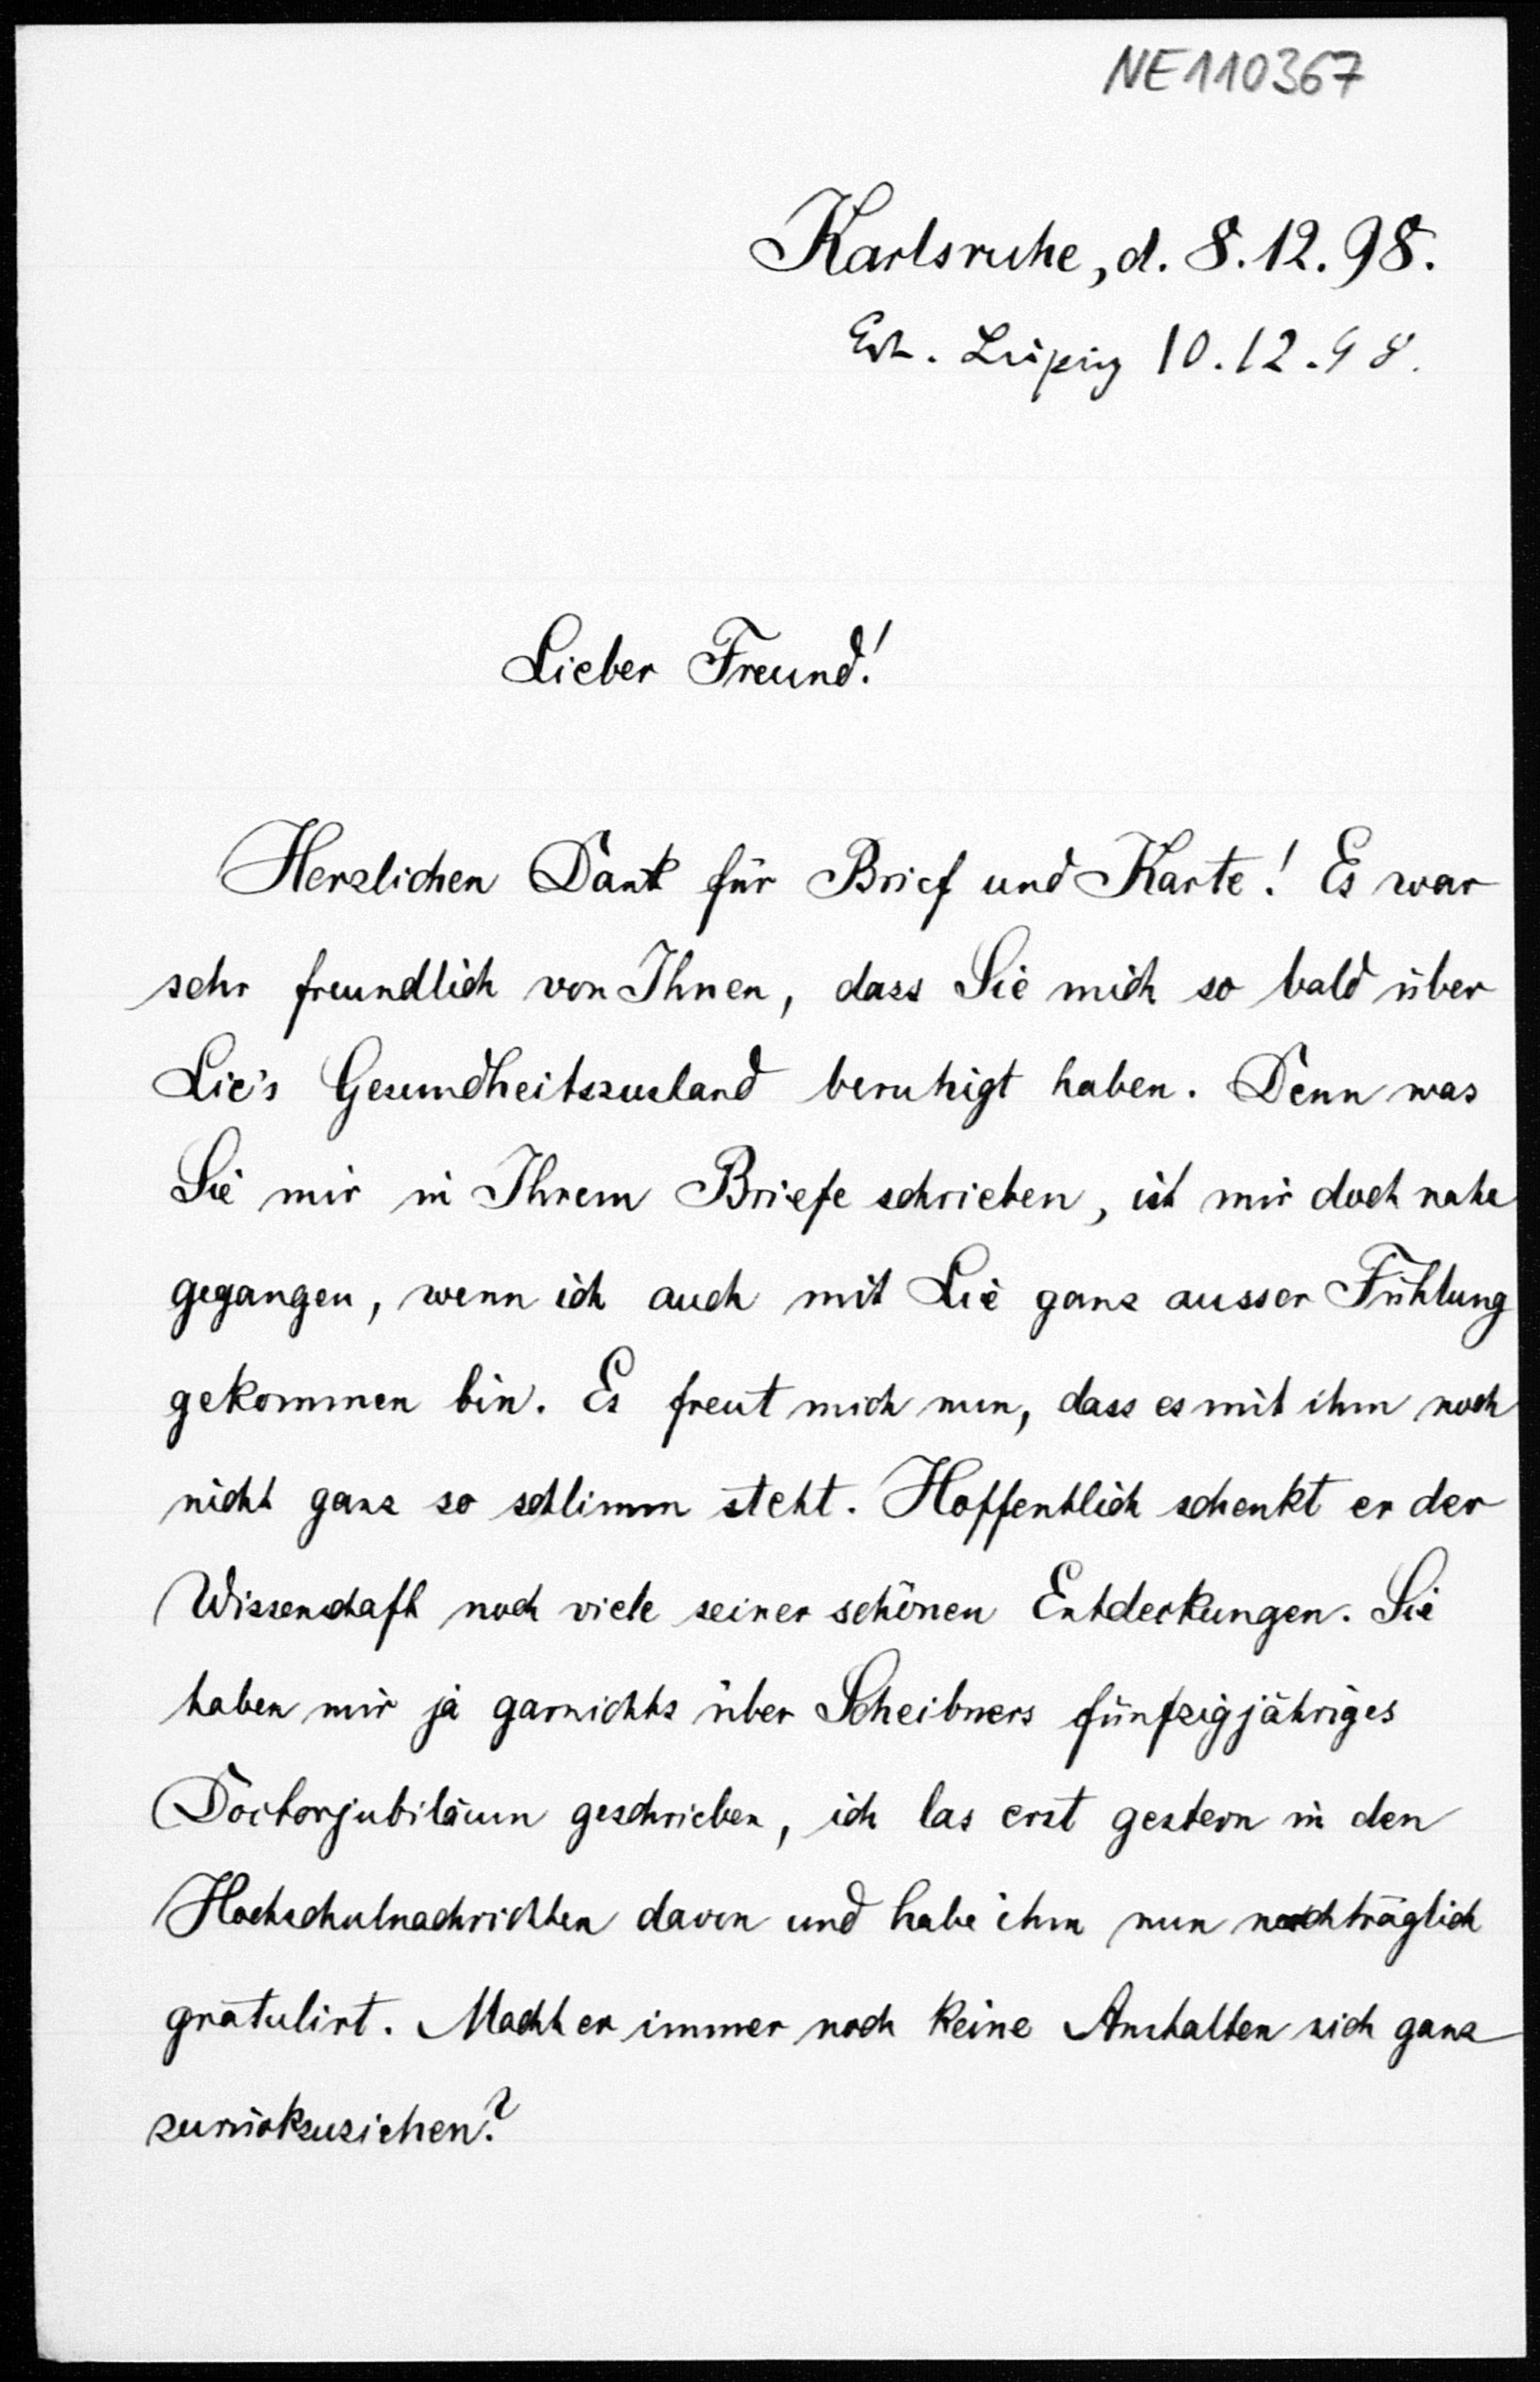 NE110367
Karlsruhe, d. 8.12.98.
Erh. Leipzig 10.12.98.
Lieber Freund!
Herzlichen Dank für Brief und Karte! Es war
sehr freundlich von Ihnen, dass Sie mich so bald über
Lie's Gesundheitszustand beruhigt haben. Denn was
Sie mir in Ihrem Briefe schrieben, ist mir doch nahe
gegangen, wenn ich auch mit Lie ganz ausser Fühlung
gekommen bin. Es freut mich nun, dass es mit ihm noch
nicht ganz so schlimm steht. Hoffentlich schenkt er der
Wissenschaft noch viele seiner schönen Entdeckungen. Sie
haben mir ja garnichts über Scheibners fünfzigjähriges
Doctorjubiläum geschrieben, ich las erst gestern in den
Hochschulnachrichten davon und habe ihm nun nachträglich
gratulirt. Macht er immer noch keine Anstalten sich ganz
zurückzuziehen?